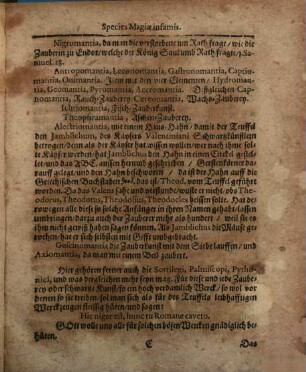 Species Magiæ infamis.
Nigromantia, da man die verstorbene um Rath fragt, wie die
Zauberin zu Endor/ welche der König Saul umb Rath fragte, 1. Sa-
muel. 28.
Antropomantia, Leconomantia, Gastronomantia, Captio-
mantia, Onimantia. Item mit den vier Elementen / Hydroman-
tia, Geomantia, Pyromantia, Aeromantia. Deßgleichen Cap-
nomantia, Rauch-Zauberey. Careomantia, Wachs-Zauberey.
Ichtiomantia, Fisch-Zauberkunst.
Theophiramantia, Aschen-Zauberey.
Alectriomantia, mit einem Hauß-Hahn / damit der Teuffel
den Jamblichum, des Käysers Valentiniani Schwartzkünstler
betrogen/ denn als der Käyser hat wissen wollen / wer nach ihme
solt Käyser werden/ hat Jamblichus den Hahn in einen Circkel gestel-
let und das ABC. aussen herumb geschrieben / Gerstenkörner dar-
auff geleget/ und den Hahn beschworen / da ist der Hahn auff die
Griechischen Buchstaben
das ist Theod. vom Teuffel geführt
worden. Da das Valens
wuste er nicht, obs Theo-
dorus, Theodotus, Theodosius, Theodocles heissen solte. Hat der-
wegen alle die so solche Anfänge in ihren Namen gehabt / lassen
umbringen/ darzu auch der Zauberer mehr als hundert / weil sie es
ihm nicht gewiß haben sagen können. Als Jamblichus die
schen/ hat er sich selbsten mit Gifft umbgebracht.
die Zauberkunst mit dem Siebelauffen / und
Axiomantia, da man mit einem Beil zaubert.
Hier gehören ferner auch die Sortilegi, Palmiscopi, Pyrhu-
nici, und was dergleichen mehr seyn mag. Für diese und jede Zaube-
rey oder schwartze Kunst/ so ein hoch verdamlich Werck / so wol vor
denen so sie treiben/ sol man sich als für des Teuffels leibhafftigen
Werckzeugen fleissig hüten/ und sagen:
Hic niger est, hunc tu Romane caveto.
GOtt wolle uns alle für solchen bösen Wercken gnädiglich be-
hüten.
C
Das